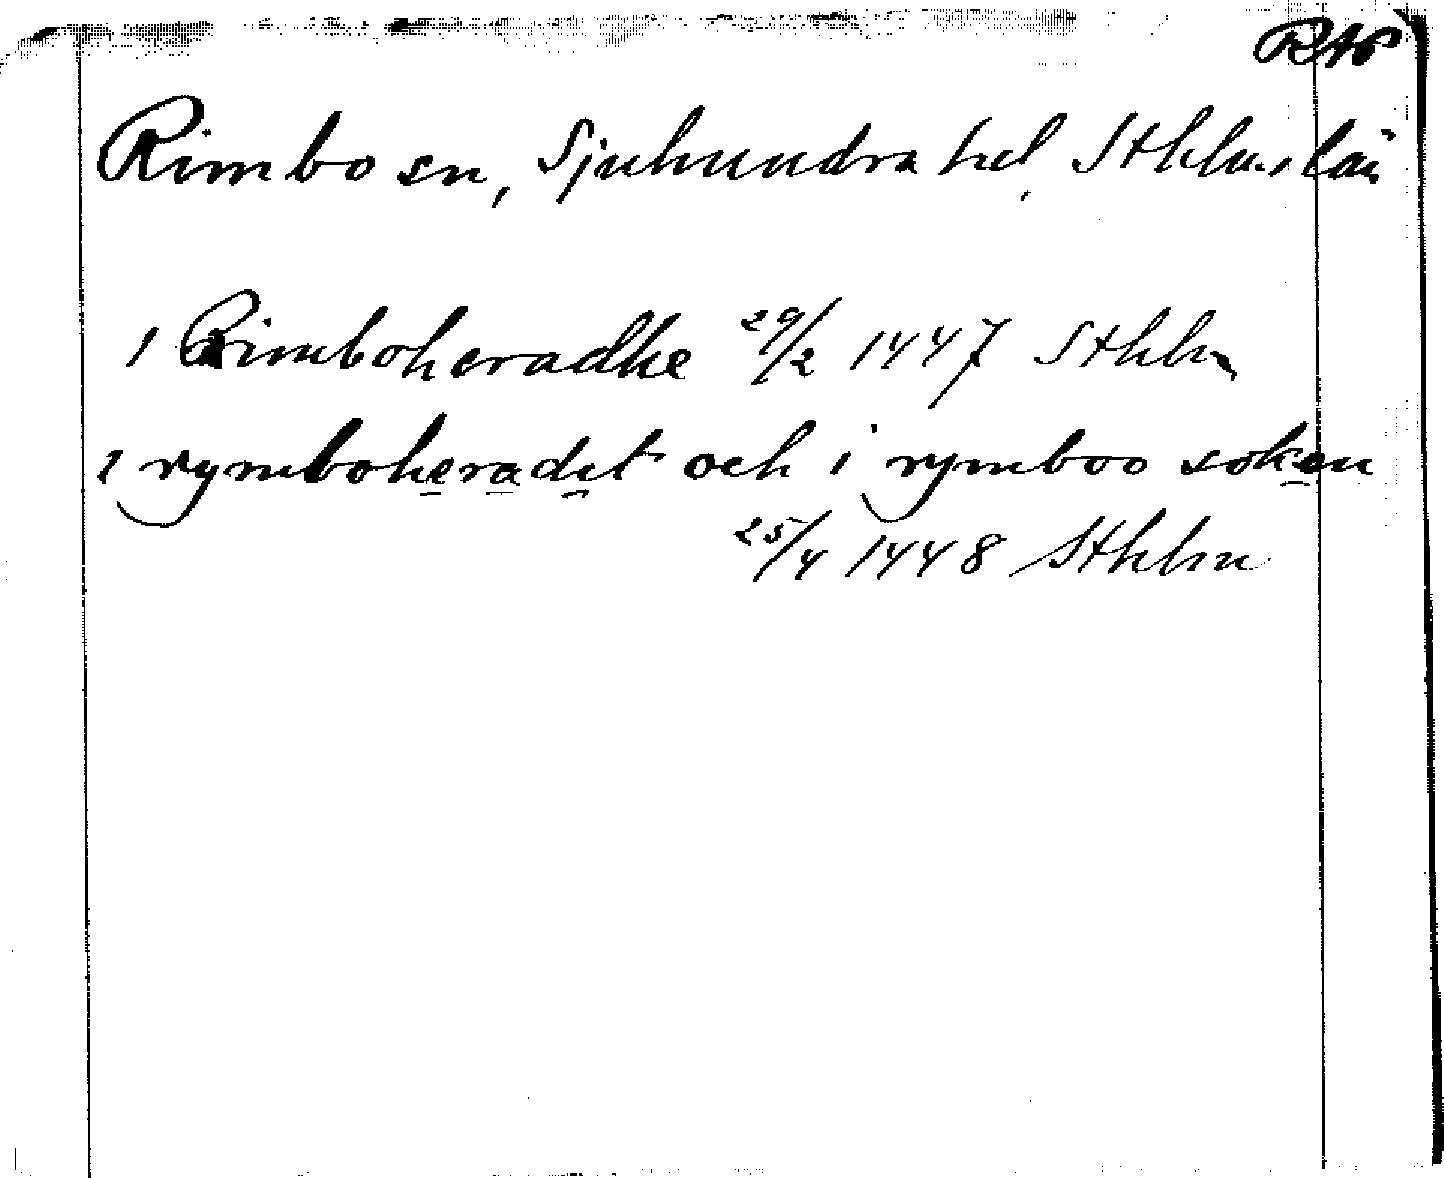 RAP
Rimbo sn, Sjuhundra hd, Sthlms län
1 Rimboheradhe 29/2 1447 Sthlm
i rymboheradet och i rymboo soken
25/4 1448 Sthlm